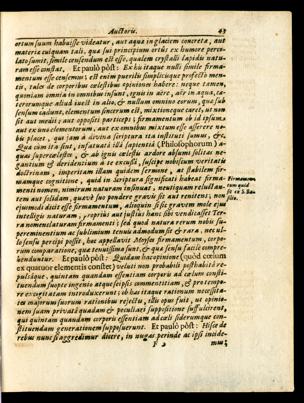 Auctoris. 43
ortum suum habuisse videatur, aut aqua in glaciem concreta, aut
materia cuipiam tali, qua sui principium ortus ex humore percu-
lato sumit, simile censendum est esse, qualem crystalli lapidis natu-
ram esse constat, Et paulò pòst: Ex hu itaque nulli simile firma-
mentum esse censemus; est enim puerilis simplicisque profectò men-
tis, tales de corporibus cælestibus opiniones habere: neque tamen,
quoniam omnia in omnibus insunt, ignis in aëre, aër in aqua, cæ-
terorumque aliud iuxtà in alio, & nullum omnino eorum, quæ sub
sensum cadunt, elementum sincerum est, mixtioneque caret, ut non
sit aut medii, aut oppositi particeps; firmamentum ob id ipsum,
aut ex uno elementorum, aut ex omnibus mixtum esse asserere no-
bis placet, qui iam à divina scriptura ita instituti sumus, &c.
Quæ cùm ita sint, infatuatà illà sapientià (Philosophorum)
quæ supercælestes, & ab ignis cælestis ardore absumi solitas ne-
gantium & deridentium à te excussà, suscipe nobiscum veritatis
doctrinam, imperitam illam quidem sermone, at stabilem fir-
mamque cognitione, quid in Scriptura significati habeat firma-
menti nomen, nimirum naturam insinuat, neutiquam reluctan-
tem aut solidam, quæve suo pondere gravis sit aut renitens; non
eiusmodi dicit esse firmamentum, alioquin
intelligis naturam; propriùs aut justiùs hanc sibi vendicasset Ter-
ra nomenclaturam firmamenti; sed quòd natura rerum nobis su-
pereminentium ac sublimium tenuis admodum sit & rara, nec ul-
lo sensu percipi possit, hoc appellavit Moyses firmamentum, corpo-
rum comparatione, quæ tenuissima sunt, & quæ sensu facilè compre-
henduntur. Et paulò pòst: Quidam hac opinione (quòd cælum
ex quatuor elementis constet) veluti non probabili posthabità re-
pulsàque, quintam quandam essentiam corporis ad cælum consti-
tuendum suopte ingenio atque ipsis commentitiam, & pro tempo-
re excogitatam introduxerunt: ob has itaque rationum necessita-
tes majorum suorum rationibus rejectis, illis opus fuit, ut opinio-
nem suam privatà quadam & peculiari suppositione suffulcirent,
qui quintam quandam corporis essentiam ad cæli siderumque con-
stituendam generationem supposuerunt. Et paulò pòst: Hisce de
rebus nunc si aggredimur dicere, in nugas perinde ac ipsi incide-
F 2 mus;
Firmamen-
tum quid
sit ex S. Ba-
silio.